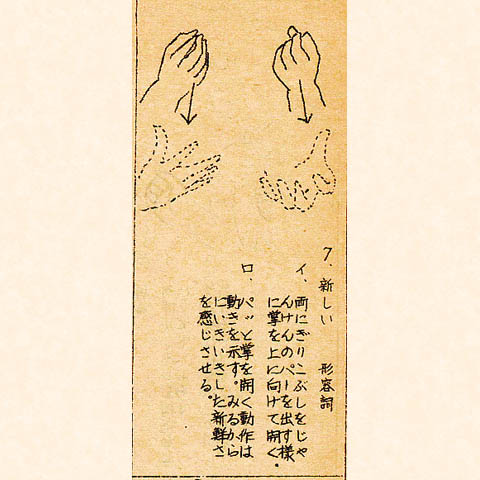 7、新しい 形容詞
イ、両にぎりこぶしをじゃ
んけんのパーを出す様
に掌を上に向けて開く。
ロ、パッと掌を開く動作は
動きを示す。みるから
にいきいきした新鮮さ
を感じさせる。